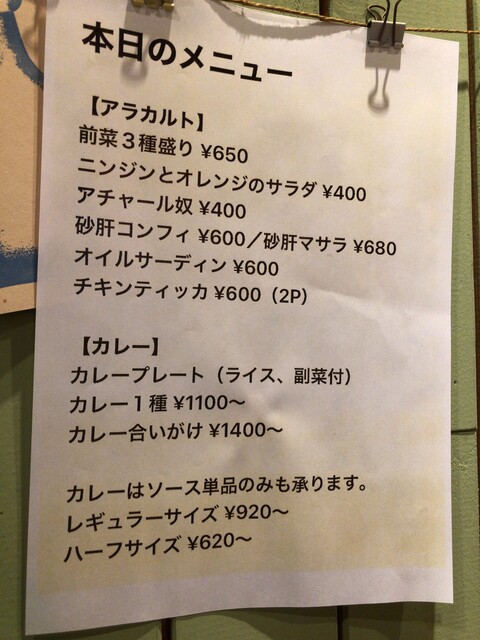 本日のメニュー
【アラカルト】
前菜3種盛り ¥650
ニンジンとオレンジのサラダ ¥400
アチャール奴 ¥400
砂肝コンフィ ¥600／砂肝マサラ ¥680
オイルサーディン ¥600
チキンティッカ ¥600（2P）
【カレー】
カレープレート（ライス、副菜付）
カレー1種 ¥1100〜
カレー合いがけ ¥1400〜
カレーはソース単品のみも承ります。
レギュラーサイズ ¥920〜
ハーフサイズ ¥620〜